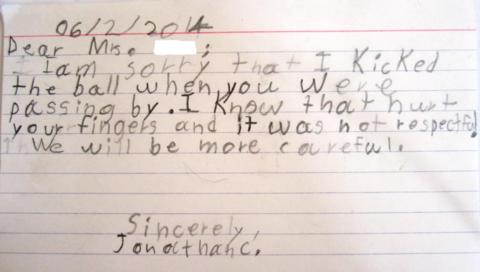 06/2/2014
Dear Mrs. :
I am sorry that I Kicked
the ball when you were
passing by. I Know that hurt
your fingers and it was not respectful
We will be more careful.
Sincerely,
Jonathan C.